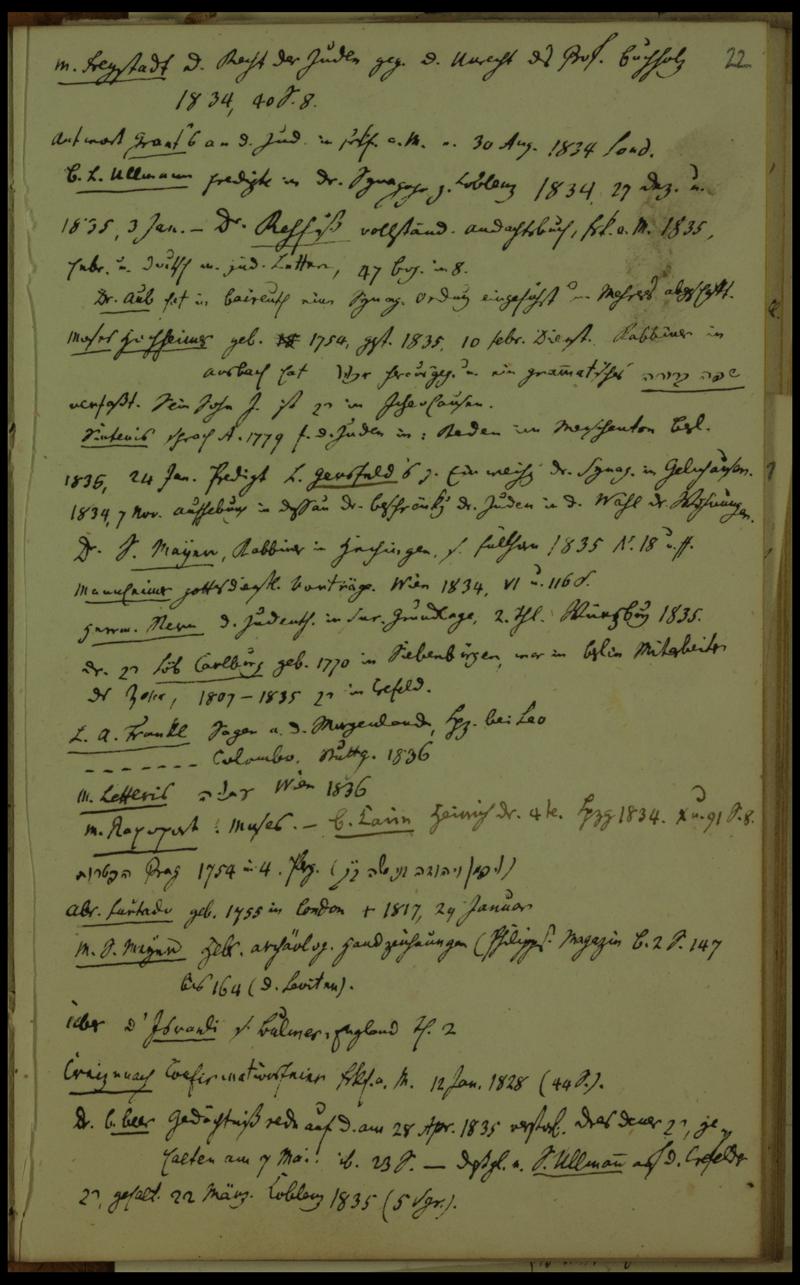 M. Freystadt D. Recht der Juden geg. d. Unrecht des Prof. Buchholz 22
1834, 40 S. 8.
Antwort Grant's an d. Jud. in Frkf. a. M. v. 30 Aug. 1834 Lond.
B. L. Ullmann Predigte in dr. Synagoge z. Coblenz 1834, 27 Dez. u.
1835, 3 Jan. – Dr. Rehfuß vollständ. Andachtsbuch, Frk. a. M. 1835,
hebr. u. deutsch m. jüd. Lettern, 47 Bog. in 8.
Dr. Aub hat in Baireuth eine Synag. Ordnung eingeführt u. Mehreres abgeschafft.
Moses Hochheimer geb. 1754, gst. 1835, 10 Febr. Dienst. Rabbiner in
Ansbach hat herausgeg. u. ein grammatisches שפה ברורה
verfaßt. Sein Sohn J. ist in Ichenhausen.
Sintenis sprach A. 1779 f. d. Juden in: Reden im Menschenton
1835, 24 Jan. Predigt L. Gersfeld's z. Einweihg dr. Synag. in Gelnhausen.
1834, 7 Nov. Aufhebung in Dessau dr. Beschränkg dr. Juden in d. Wahl dr. Wohnungen.
Dr. S. Mayer, Rabbiner in Hechingen, s. 1835 N. 18 u. ff.
Mannheimer gottesdienstl. Vorträge. Wien 1834, VI u. 116 S.
Herrm. Stern d. Judenth. in sr. Grundlage, 2. Thl. Würzburg 1835.
dr. Löb Carlburg geb. 1770 in Siebenbürgen, war in Berlin Mitarbeiter
dr 1807 – 1835 in Crefeld.
L. A. Frankl Sagen a. d. Morgenlande, Lpz. bei Leo
- - - - - - - Colombo. Stuttg. 1836
M. Letteris Wien 1836
M. Rapoport: Moses. – B. Lavin Heinrich dr. 4te. Lpzg 1834. X u. 91 S. 8.
Prag 1754 in 4.
Abr. Furtado geb. 1755 in London + 1817, 29 Januar
M. S. Mayer Hebr. archäolog. Handzeichnungen (Philipps. Magazin B. 2 S. 147
bis 164 (d. Leviten).
über D'Israeli s. Bulwer, England Th. 2
Creizenach Confirmationsfeier Frkf. a. M. 12 Jan. 1828 (44 S.).
Dr. B. Beer Gedächtnißrede auf d. am 28 Apr. 1835 verstorb. Dresdener, ge-
halten am 7 Mai. ib. 23 S. – desgl. v. S. Ullmann auf d. Crefelder
gehalt. 22 März. Coblenz 1835 (5 Sgr.).